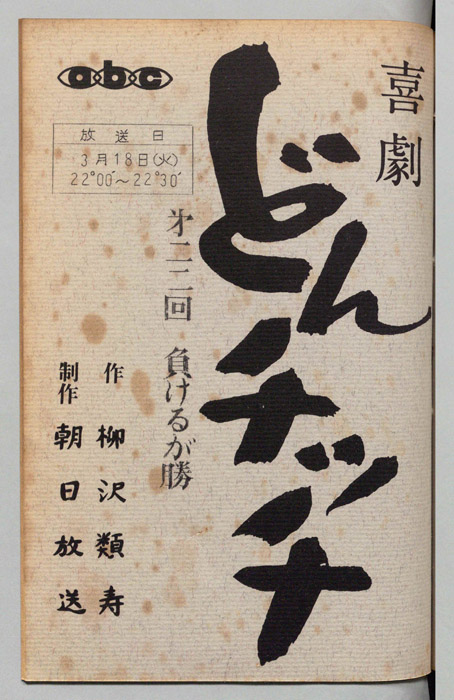 喜劇
どんチッチ
㐧二二回 負けるが勝
abc
放送日
3月18日(火)
22°00′～22°30′
作 柳沢類寿
制作 朝日放送